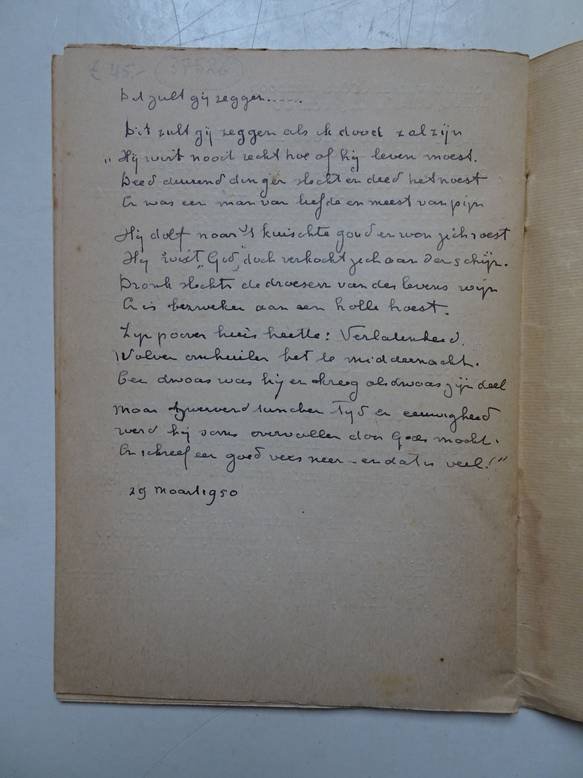 € 45.- 37526
Dit zult gij zeggen......
Dit zult gij zeggen als ik dood zal zijn
„Hij wist nooit recht hoe of hij leven moest.
Deed durend dingen slecht en deed het
En was een man van liefde en meest van pijn
Hij dolf naar 't kuischte goud en won zich roest
Hij wist „God" doch verkocht zich aan den schijn.
Dronk slechts de droesem van des levens wijn
En is bezweken aan een holle hoest.
Zijn pover huis heette: Verlatenheid.
Wolven omhuilen het te middernacht.
Een dwaas was hij en kreeg als dwaas zijn deel
Maar zwervend tusschen Tijd en eeuwigheid
werd hij soms overvallen door Gods macht.
En schreef een goed vers neer – en dat is veel!"
29 maart 1950